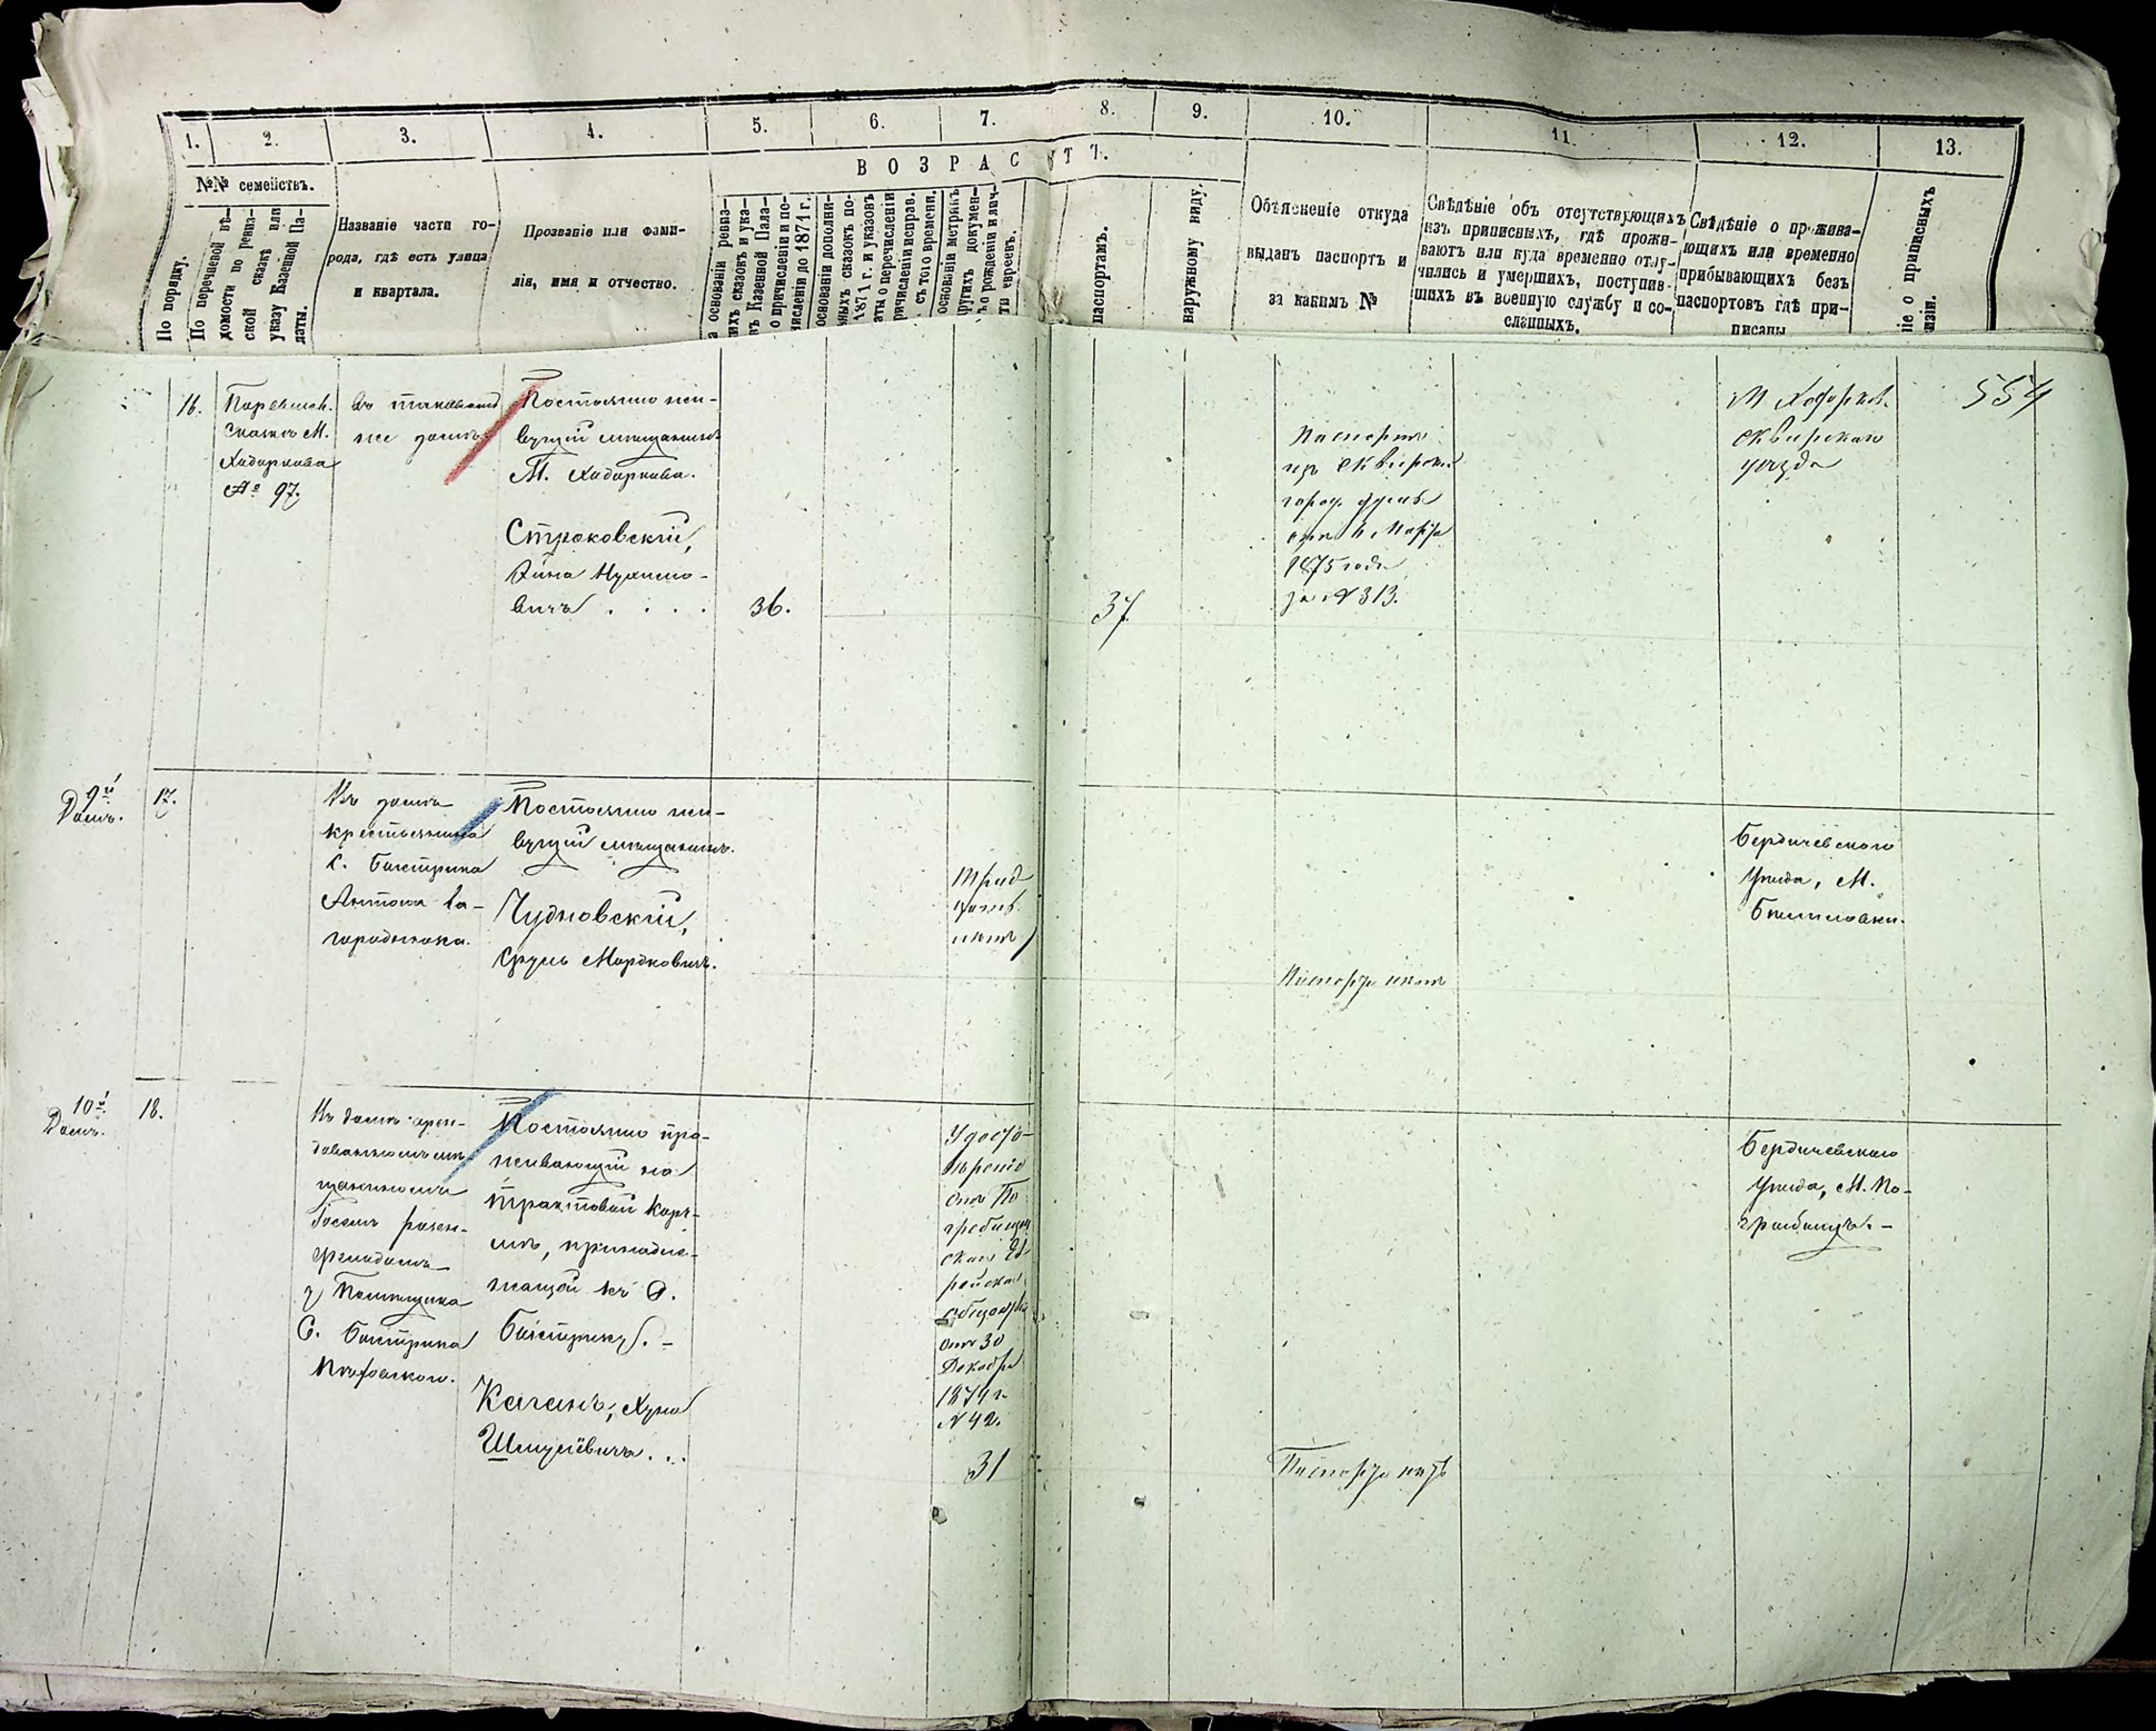 1.
2.
3.
4.
5.
6.
7.
8.
9.
10.
11.
12.
13.
№№ семействъ.
В О З Р А С Т Ъ.
По порядку.
По перечневой вѣ-
домости по ревиз-
ской сказкѣ или
указу Казенной Па-
латы.
Названіе части го-
рода, гдѣ есть улица
и квартала.
Прозваніе или фами-
лія, имя и отчество.
основаніи ревиз-
ихъ сказокъ и ука-
въ Казенной Пала-
о причисленіи и по-
численіи до 1871 г.
основаніи дополни-
ныхъ сказокъ по-
1871 г. и указовъ
аты о перечисленіи
ричисленіи исправ.
съ того времени.
основаніи метрикъ
ругихъ докумен-
о рожденіи и лич-
ти евреевъ.
паспортамъ.
наружному виду.
Объясненіе откуда
выданъ паспортъ и
за какимъ №
Свѣдѣніе объ отсутствующихъ
изъ приписныхъ, гдѣ прожи-
ваютъ или куда временно отлу-
чились и умершихъ, поступив-
шихъ въ военную службу и со-
сланныхъ.
Свѣдѣніе о прожива-
ющихъ или временно
прибывающихъ безъ
паспортовъ гдѣ при-
писаны
ніе о приписныхъ
визіи.
554
16.
Сказкѣ М.
Ходоркова
№ 97.
же домѣ
Постоянно жи-
вущій мѣщанинъ
М. Ходоркова.
Строковскій,
вичъ . . . .
36.
37
Паспортъ
изъ Сквирской
город. думы
отъ Марта
1875 года
за № 313.
М Ходорков.
Сквирскаго
уѣзда
9й
Домъ.
17.
Въ домѣ
крестьянина
с. Быстрика
Антона За-
городнюка.
Постоянно жи-
вущій мѣщанинъ.
Чудновскій,
Сруль Мордковичъ.
Трид
цать
лѣтъ
Паспорта нѣтъ
Бердичевскаго
Уѣзда, М.
Бѣлиловки.
10й
Домъ.
18.
Въ домѣ арен-
дованномъ мѣ-
щаниномъ
Іосемъ Розен-
фельдомъ
у Помѣщика
С. Быстрика
Постоянно про-
живающій на
трактовой корч-
мѣ, принадле-
жащей къ С.
Быстрику. -
Каганъ, Хуна
Шмулевичъ . . .
Удосто-
вѣреніе
отъ По
гребищен
скаго Ев
рейскаго
общества
отъ 30
Декабря
1874 г.
№ 42.
31
Паспорта нѣтъ
Бердичевскаго
Уѣзда, М. По-
гребищъ. -